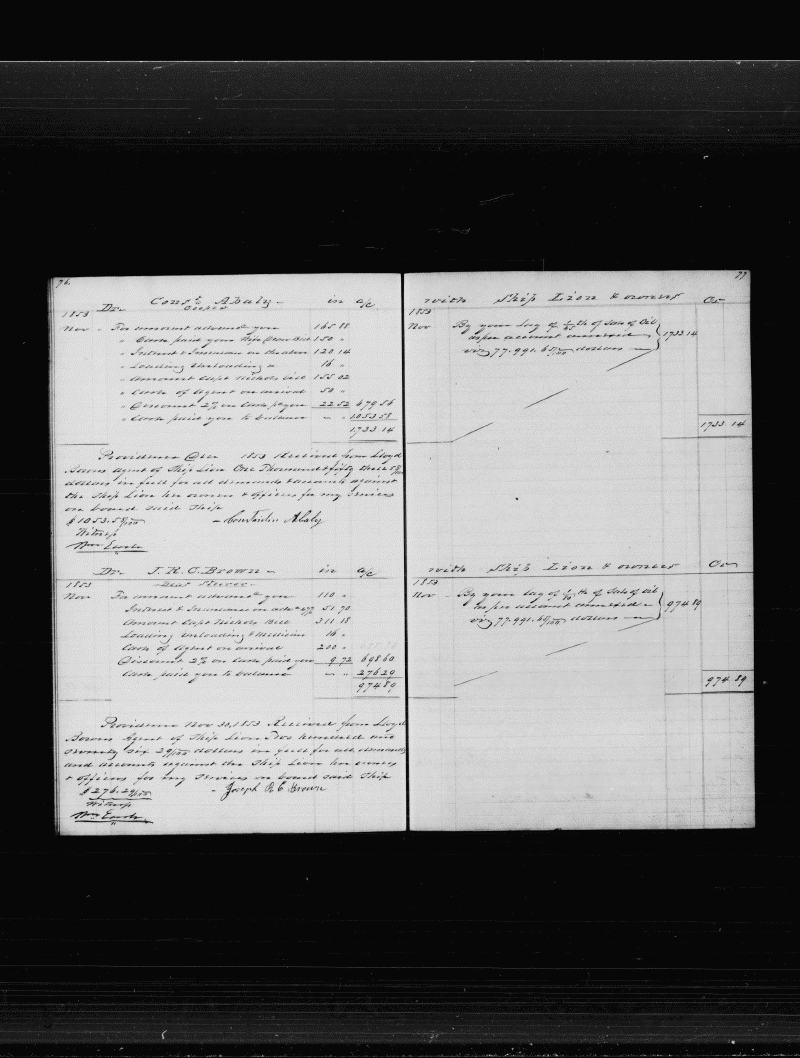 76.
Dr. Const. A Daly - in a/c
Cooper
1853
Nov " To amount advanced you 165 88
" Cash paid your Wife 150 "
" Interest & Insurance on 120 14
" Loading Unloading " 16 "
" Amount Capt Nichols bill 155 02
" Cash of Agent on arrival 50 "
" Discount 2% on Cash pd you 22 52 679 56
" Cash paid you to balance " " 1053 58
1733 14
Providence Dec 1853 Received from Lloyd
Bowers Agent of Ship Lion One Thousand & fifty three 58/100
dollars in full for all demands & accounts against
the Ship Lion her owners & officers for my services
on board said Ship
$1053.58/100 - Constantin A Daly
Witness
Wm Earle
Dr. J. R. C. Brown - in a/c
1853
Nov To amount advanced you 110 "
Interest & Insurance on 51 70
Amount Capt Nichols Bill 311 18
Loading Unloading & Medicine 16 "
Cash of Agent on arrival 200 "
Discount 2% on Cash paid you 9 72 698 60
Cash paid you to balance " " 276 29
974 89
Providence Nov 30, 1853 Received from Lloyd
Bowers Agent of Ship Lion Two hundred and
seventy six 29/100 dollars in full for all demands
and accounts against the Ship Lion her owners
& officers for my services on board said Ship
$276.29/100 - Joseph R C Brown
Witness
Wm Earle
77
with Ship Lion & owners Cr
1853
Nov By your lay of th of Sale of Oil
as per account annexed 1733 14
viz 77.991.65/100 dollars
1733.14
with Ship Lion & owners Cr
1853
Nov - By your lay of th of Sale of Oil
as per account annexed - 974 89
viz 77.991.65/100 dollars -
974.89